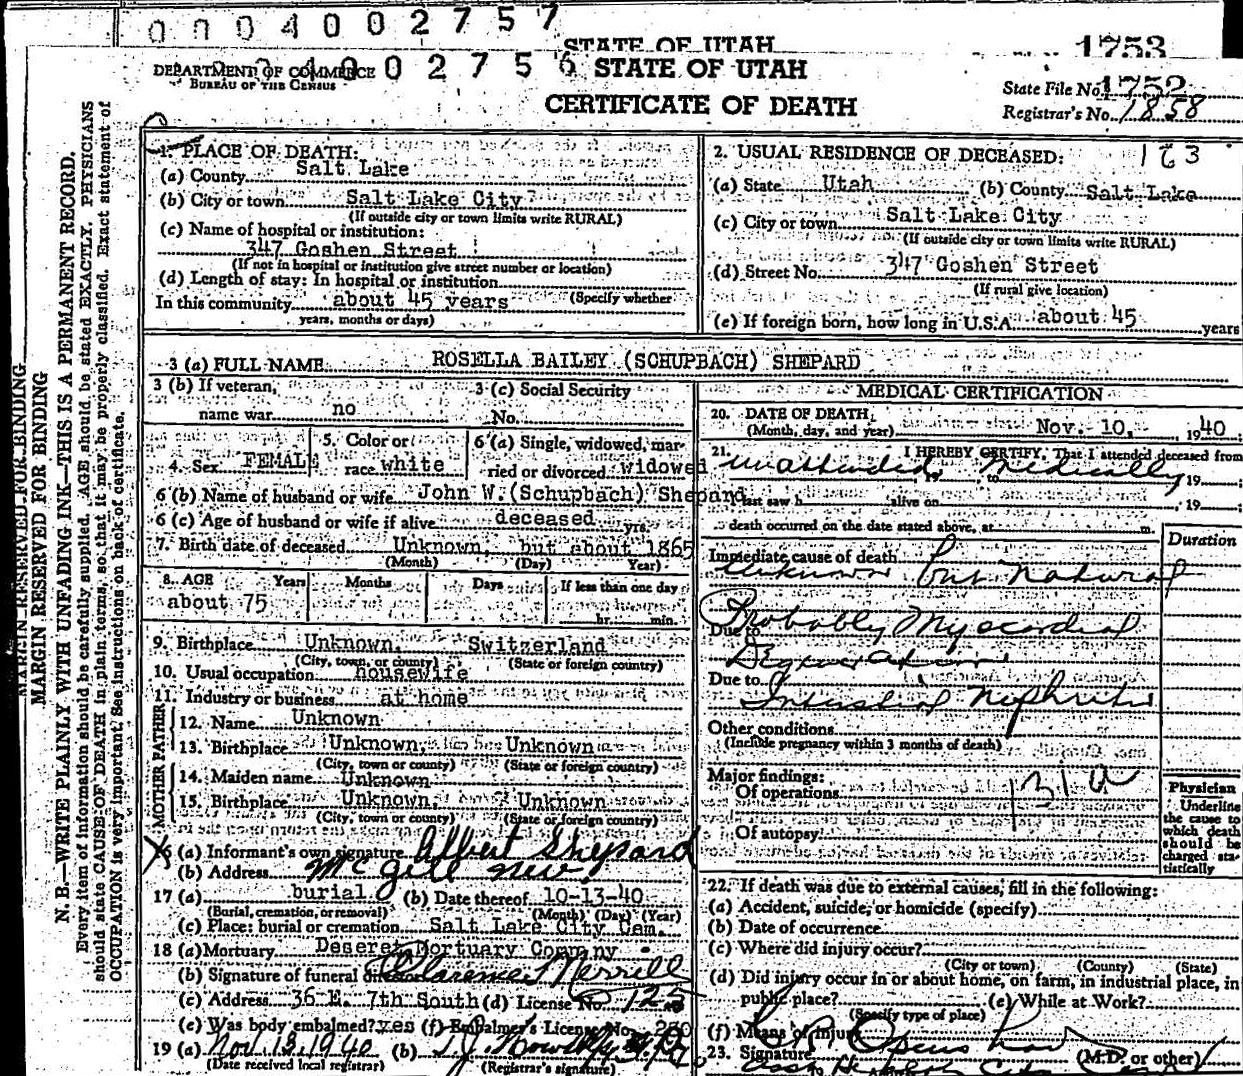 0 0 0 4 0 0 2 7 5 7
STATE OF UTAH
1753
DEPARTMENT OF COMMERCE
BUREAU OF THE CENSUS
4 0 0 2 7 5 6
STATE OF UTAH
CERTIFICATE OF DEATH
State File No. 1752
Registrar's No. 1858
MARGIN RESERVED FOR BINDING
MARGIN RESERVED FOR BINDING
N. B.—WRITE PLAINLY WITH UNFADING INK—THIS IS A PERMANENT RECORD.
Every item of information should be carefully supplied. AGE should be stated EXACTLY. PHYSICIANS
should state CAUSE OF DEATH in plain terms, so that it may be properly classified. Exact statement of
OCCUPATION is very important. See instructions on back of certificate.
1. PLACE OF DEATH:
(a) County Salt Lake
(b) City or town Salt Lake City
(If outside city or town limits write RURAL)
(c) Name of hospital or institution:
347 Goshen Street
(If not in hospital or institution give street number or location)
(d) Length of stay: In hospital or institution
(Specify whether
In this community about 45 years
years, months or days)
2. USUAL RESIDENCE OF DECEASED:
(a) State Utah (b) County Salt Lake
(c) City or town Salt Lake City
(If outside city or town limits write RURAL)
(d) Street No. 347 Goshen Street
(If rural give location)
(e) If foreign born, how long in U.S.A. about 45 years
3 (a) FULL NAME ROSELLA BAILEY (SCHUPBACH) SHEPARD
3 (b) If veteran,
name war no
3 (c) Social Security
No.
4. Sex FEMALE
5. Color or
race white
6 (a) Single, widowed, mar-
ried or divorced widowed
6 (b) Name of husband or wife John W. (Schupbach) Shepard
6 (c) Age of husband or wife if alive deceased yrs.
7. Birth date of deceased Unknown, but about 1865
(Month) (Day) Year)
8. AGE Years Months Days If less than one day
about 75 hr. min.
9. Birthplace Unknown, Switzerland
(City, town, or county) (State or foreign country)
10. Usual occupation housewife
11. Industry or business at home
FATHER
12. Name Unknown
13. Birthplace Unknown, Unknown
(City, town or county) (State or foreign country)
MOTHER
14. Maiden name Unknown
15. Birthplace Unknown, Unknown
(City, town or county) (State or foreign country)
(a) Informant's own signature Albert Shepard
(b) Address McGill Nev
17 (a) burial (b) Date thereof 10-13-40
(Burial, cremation, or removal) (Month) (Day) (Year)
(c) Place: burial or cremation Salt Lake City Cem.
18 (a) Mortuary Deseret Mortuary Company
(b) Signature of funeral Clarence Merrill
(c) Address 36 E. 7th South (d) License No. 125
(e) Was body embalmed? yes (f) Embalmer's License No.
19 (a) Nov. 13, 1940 (b)
(Date received local registrar) (Registrar's signature)
MEDICAL CERTIFICATION
20. DATE OF DEATH
(Month, day, and year) Nov. 10, 1940
21. I HEREBY CERTIFY, That I attended deceased from
unattended medically 19
I last saw h alive on , 19
death occurred on the date stated above, at m.
Duration
Immediate cause of death
unknown but natural
Probably Myocardial
Due to
Degeneration
Due to
Interstitial Nephritis
Other conditions
(Include pregnancy within 3 months of death)
Major findings:
Of operations
131 a
Of autopsy
Physician
Underline
the cause to
which death
should be
charged sta-
tistically
22. If death was due to external causes, fill in the following:
(a) Accident, suicide, or homicide (specify)
(b) Date of occurrence
(c) Where did injury occur?
(City or town) (County) (State)
(d) Did injury occur in or about home, on farm, in industrial place, in
public place? (e) While at Work?
(Specify type of place)
(f) Means of Injury
23. Signature (M.D. or other)